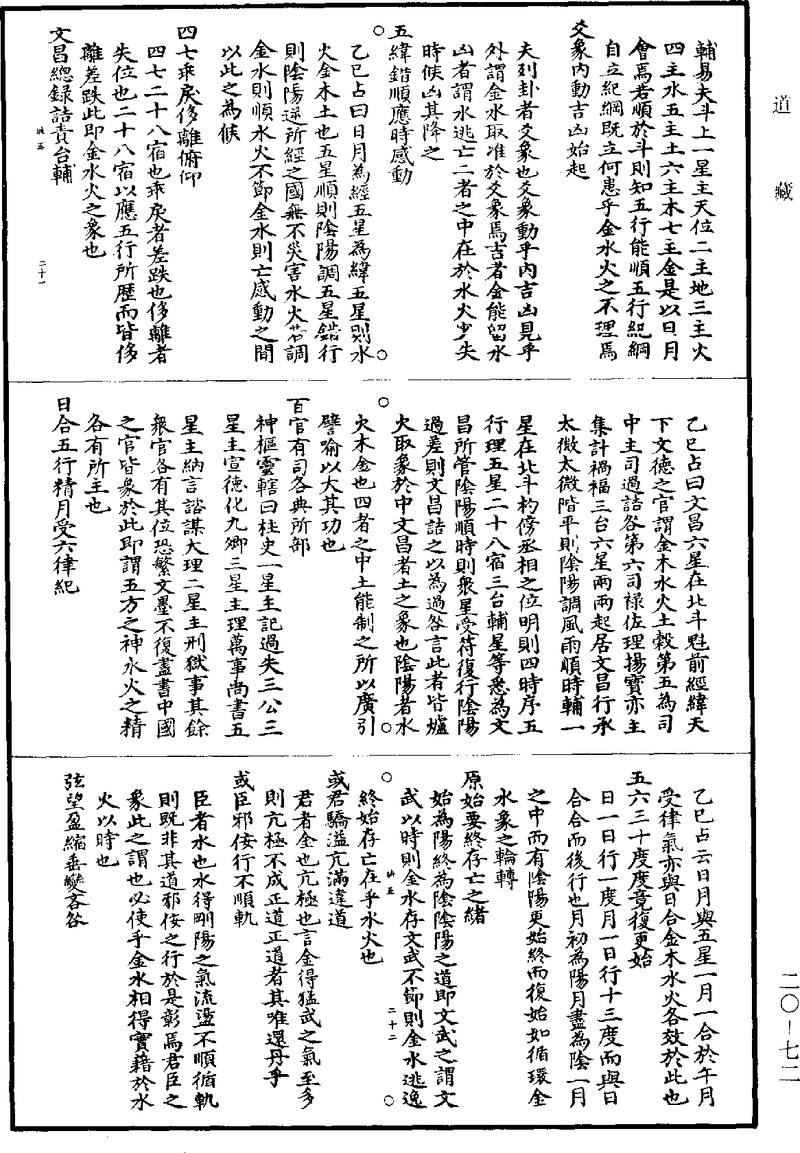 道藏
輔易夫斗上一星主天位二主地三主火
四主水五主土六主木七主金是以日月
會焉若順於斗則知五行能順五行紀綱
自立紀綱既立何患乎金水火之不理焉
爻象內動吉凶始起
夫列卦者爻象也爻象動乎內吉凶見乎
外謂金水取准於爻象焉吉者金能留水
凶者謂水逃亡二者之中在於水火少失
時候凶其降之
五緯錯順應時感動
乙巳占曰日月為經五星為緯五星則水
火金木土也五星順則陰陽調五星錯行
則陰陽逆所經之國無不災害水火若調
金水則順水火不節金水則亡感動之間
以此之為候
四七乖戾侈離俯仰
四七二十八宿也乖戾者差跌也侈離者
失位也二十八宿以應五行所歷而皆侈
離差跌此即金水火之象也
文昌總錄詰責台輔
二十一
乙巳占曰文昌六星在北斗魁前經緯天
下文德之官謂金木水火土穀第五為司
中主司過詰咎第六司祿佐理揚寶亦主
集計禍福三台六星兩兩起居文昌行承
太微太微階平則陰陽調風雨順時輔一
星在北斗杓傍丞相之位明則四時序五
行理五星二十八宿三台輔星等悉為文
昌所管陰陽順時則衆星受符復行陰陽
過差則文昌詰之以為過咎言此者皆爐
火取象於中文昌者土之象也陰陽者水
火木金也四者之中土能制之所以廣引
譬喻以大其功也
百官有司各典所部
神樞靈轄曰柱史一星主記過失三公三
星主宣德化九卿三星主理萬事尚書五
星主納言諮謀大理二星主刑獄事其餘
衆官各有其位恐繁文墨不復盡書中國
之官皆象於此即謂五方之神水火之精
各有所主也
日合五行精月受六律紀
乙巳占云日月與五星一月一合於午月
受律氣亦與日合金木水火各效於此也
五六三十度度竟復更始
日一日行一度月一日行十三度而與日
合合而後行也月初為陽月盡為陰一月
之中而有陰陽更始終而復始如循環金
水象之輪轉
原始要終存亡之緒
始為陽終為陰陰陽之道即文武之謂文
武以時則金水存文武不節則金水逃逸
二十二
終始存亡在乎水火也
或君驕溢亢滿違道
君者金也亢極也言金得猛武之氣至多
則亢極不成正道正道者其唯還丹乎
或臣邪佞行不順軌
臣者水也水得剛陽之氣流盪不順循軌
則既非其道邪佞之行於是彰焉君臣之
象此之謂也必使乎金水相得實藉於水
火以時也
弦望盈縮乖變吝咎
二〇－七二